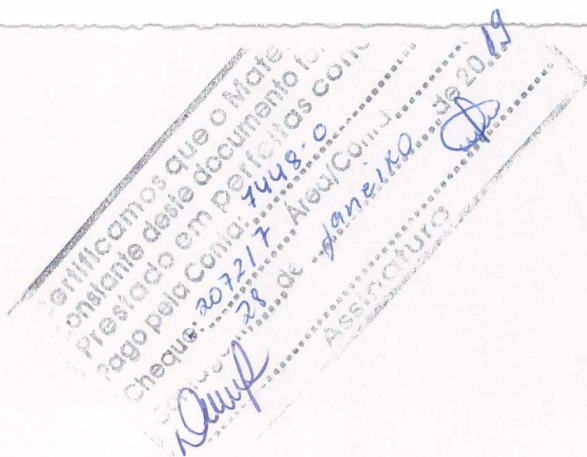 ertificamos que o Mate
onstante deste documento fo
Prestado em perfeitas cond
Pago pela Conta: 7448-0
Cheque: 207217 Área/Cont
28 de Janeiro de 2019
Assinatura